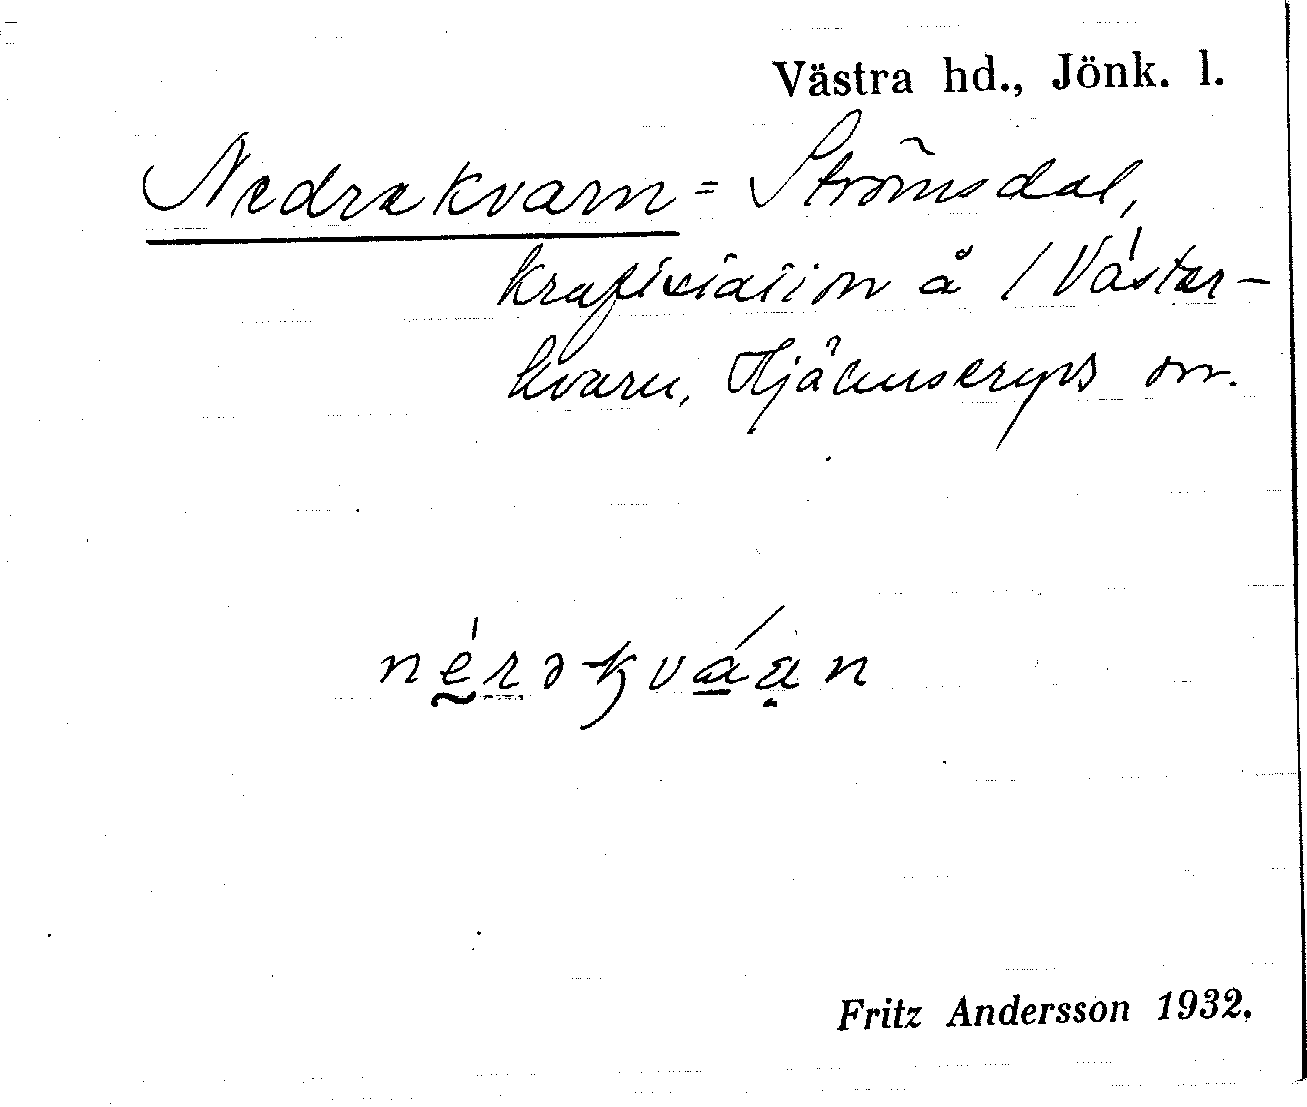 Västra hd., Jönk. l.
Nedrekvarn = Strömsdal,
kraftstation å / Väster-
kvarn, Hjälmseryds sn.
nérəkváan
Fritz Andersson 1932.